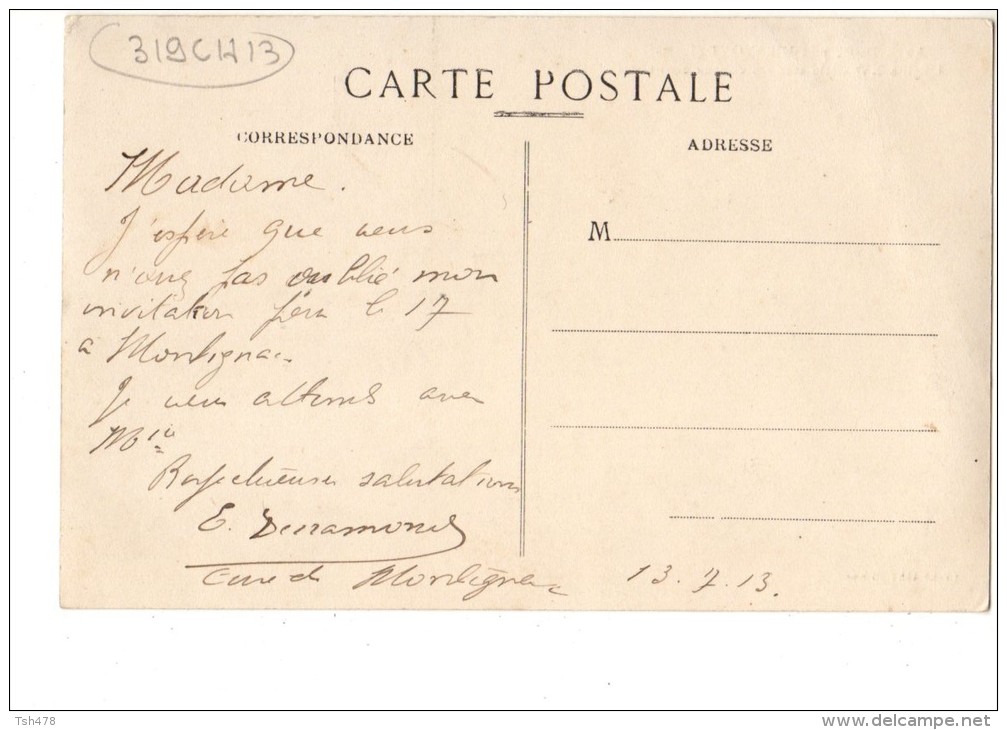 319CH13
CARTE POSTALE
CORRESPONDANCE
ADRESSE
Madame.
J'espère que vous
n'avez pas oublié mon
invitation pour le 17
à Montignac
Je vous attends avec
M
Respectueuses salutations
E.
Curé de Montignac
13.7.13.
M
Tsh478
www.delcampe.net